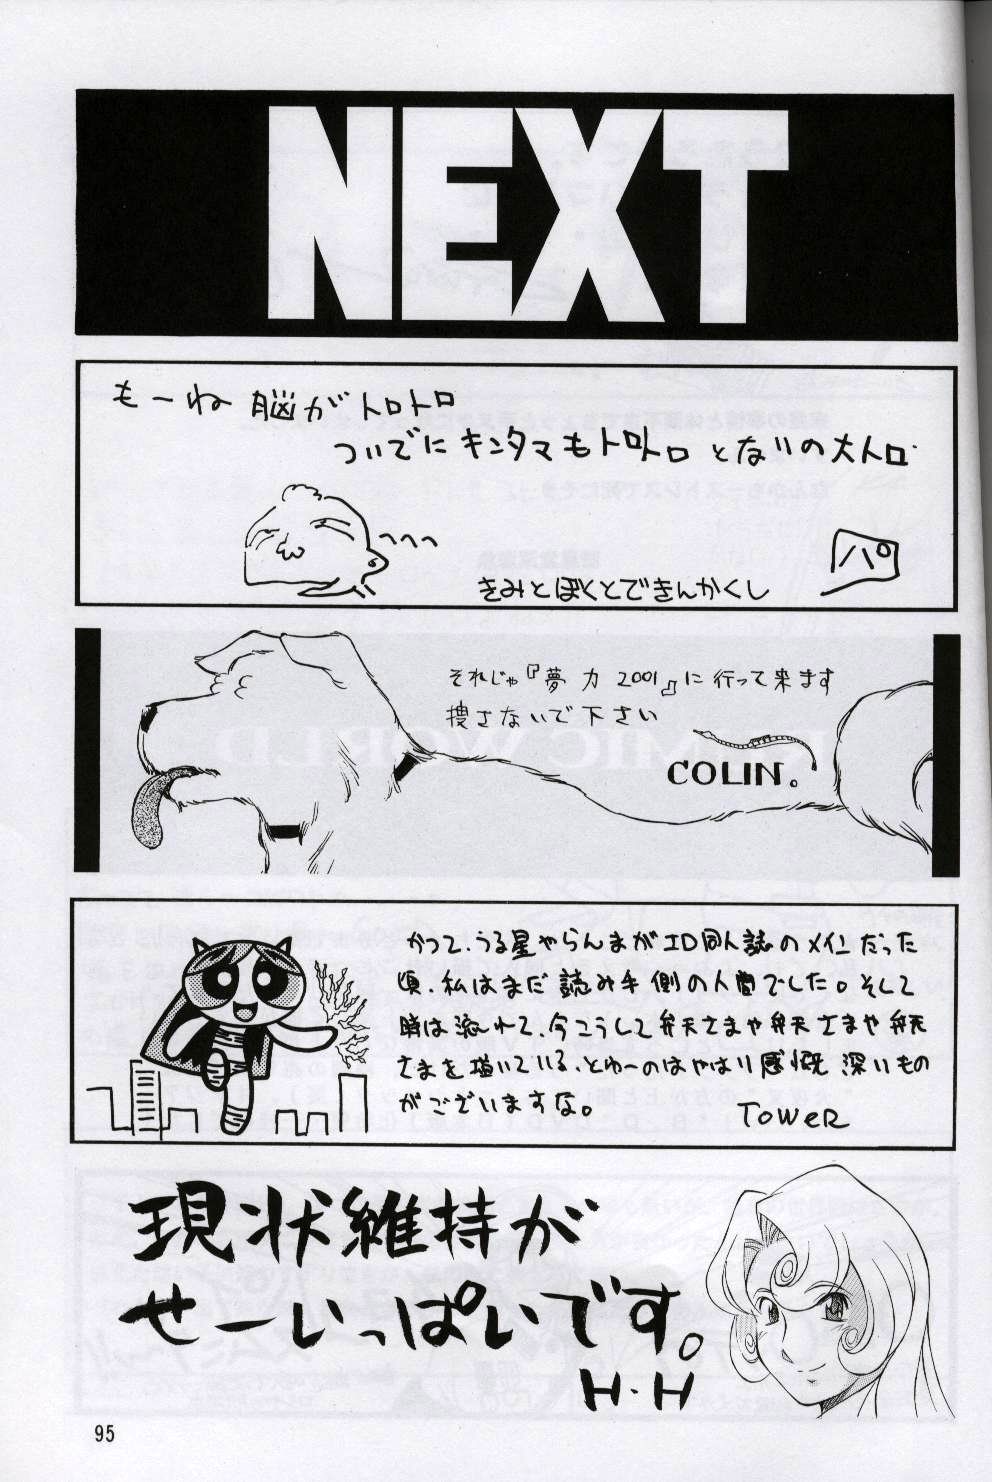 NEXT
もーね 脳が トロトロ
ついでに キンタマも トロトロ とないの大トロ
パ
きみとぼくとできんかくし
それじゃ『夢力 2001』に行って来ます
捜さないで下さい
COLIN.
かつて、うる星やらんまがエロ同人誌のメインだった
頃、私はまだ読み手側の人間でした。そして
時は流れて、今こうして弁天さまや弁天さまや弁天
さまを描いている、とゆーのはやはり感慨深いもの
がございますな。
TOWER
現状維持が
せーいっぱいです。
H・H
95